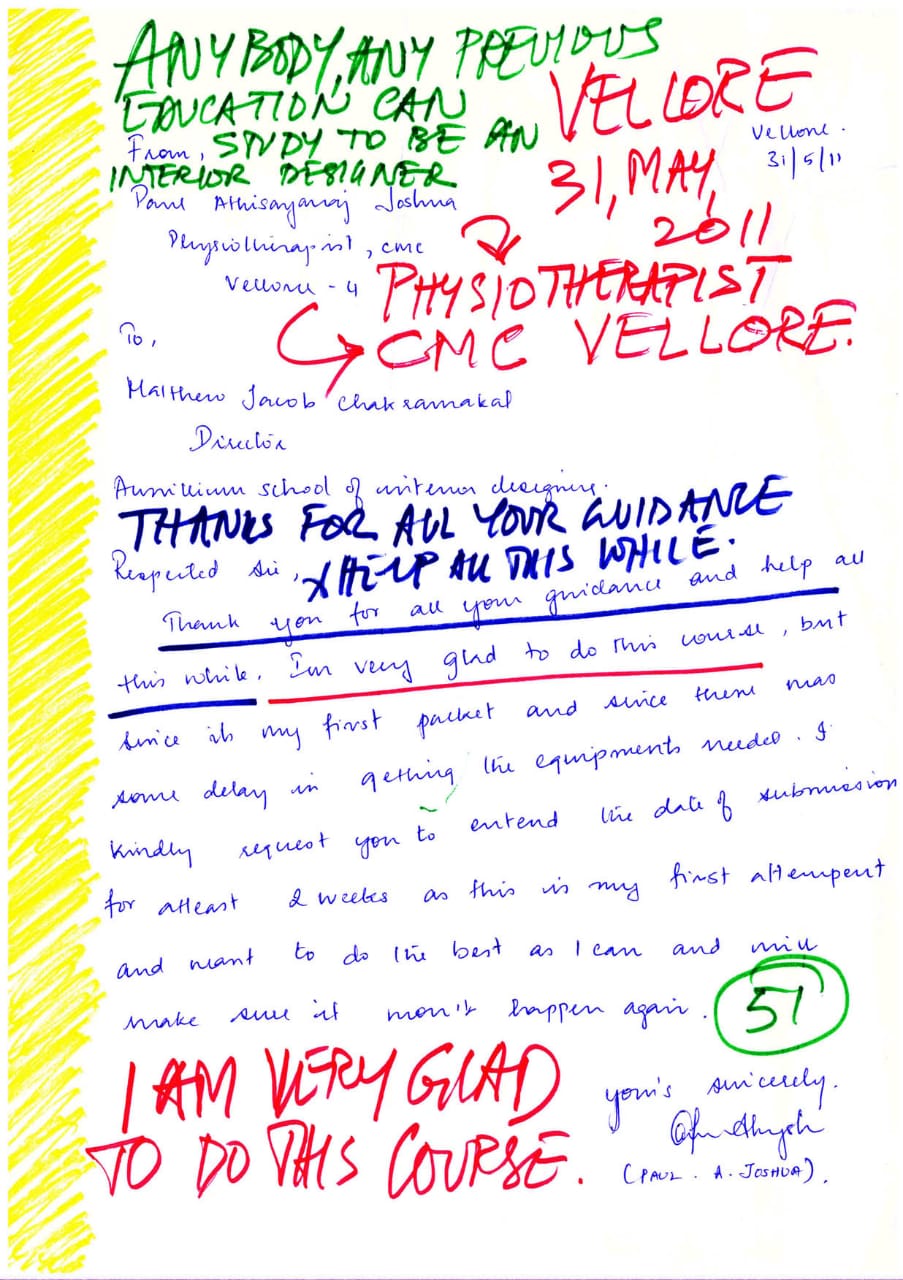 ANYBODY, ANY PREVIOUS
EDUCATION CAN
STUDY TO BE AN
INTERIOR DESIGNER
VELLORE
31, MAY,
2011
PHYSIOTHERAPIST
CMC VELLORE.
Vellore.
31/5/11
From,
Paul Athisayaraj Joshua
Physiotherapist, CMC
Vellore - 4
To,
Matthew Jacob Chakramakal
Director
Auxillium school of interior designing.
THANKS FOR ALL YOUR GUIDANCE
& HELP ALL THIS WHILE.
Respected Sir,
Thank you for all your guidance and help all
this while. I'm very glad to do this course, but
since its my first packet and since there was
some delay in getting the equipments needed. I
kindly request you to extend the date of submission
for atleast 2 weeks as this is my first attempent
and want to do the best as I can and will
make sure it won't happen again.
57
I AM VERY GLAD
TO DO THIS COURSE.
your's sincerely.
(PAUL. A. JOSHUA).